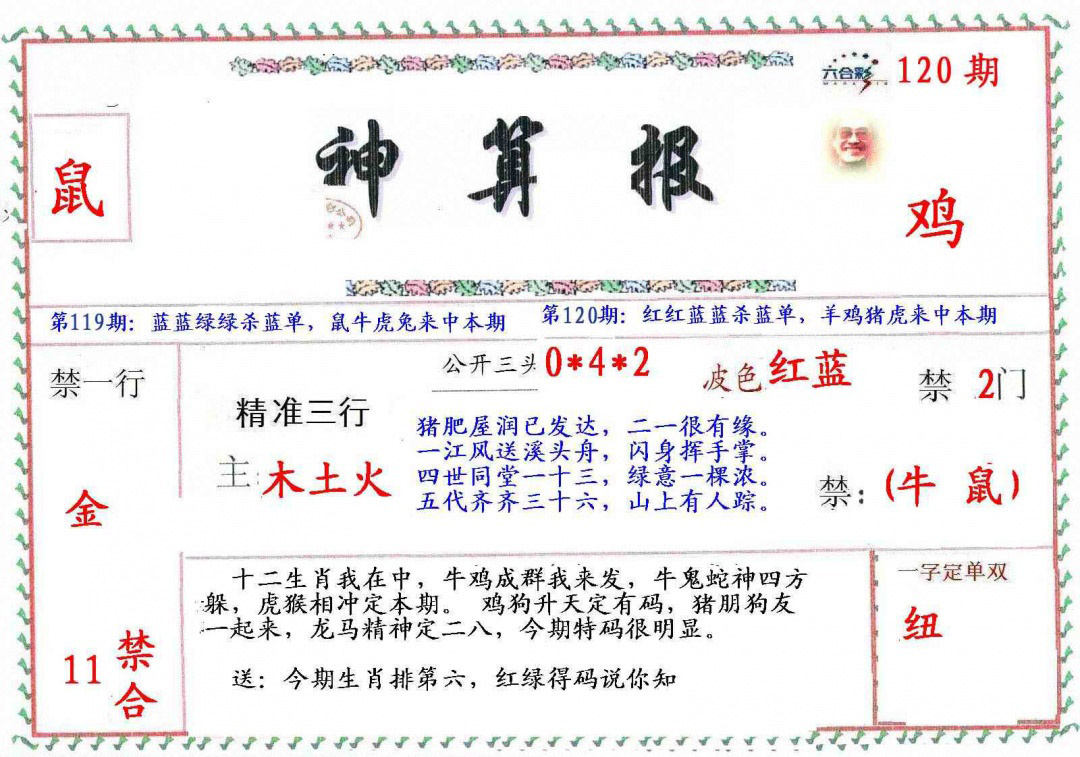 六合彩 120 期
鼠
神算报
鸡
第119期：蓝蓝绿绿杀蓝单，鼠牛虎兔来中本期
第120期：红红蓝蓝杀蓝单，羊鸡猪虎来中本期
禁一行
金
11 禁合
精准三行
主:木土火
公开三头0*4*2
波色 红蓝
猪肥屋润已发达，二一很有缘。
一江风送溪头舟，闪身挥手掌。
四世同堂一十三，绿意一棵浓。
五代齐齐三十六，山上有人踪。
禁 2门
禁：(牛 鼠)
十二生肖我在中，牛鸡成群我来发，牛鬼蛇神四方
躲，虎猴相冲定本期。 鸡狗升天定有码，猪朋狗友
一起来，龙马精神定二八，今期特码很明显。
送：今期生肖排第六，红绿得码说你知
一字定单双
纽